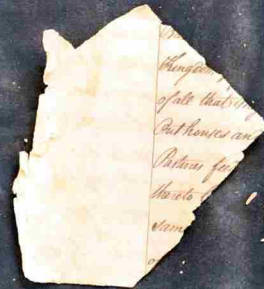 Kingdom
of all that
Outhouses an
Pastures fe
thereto
sam